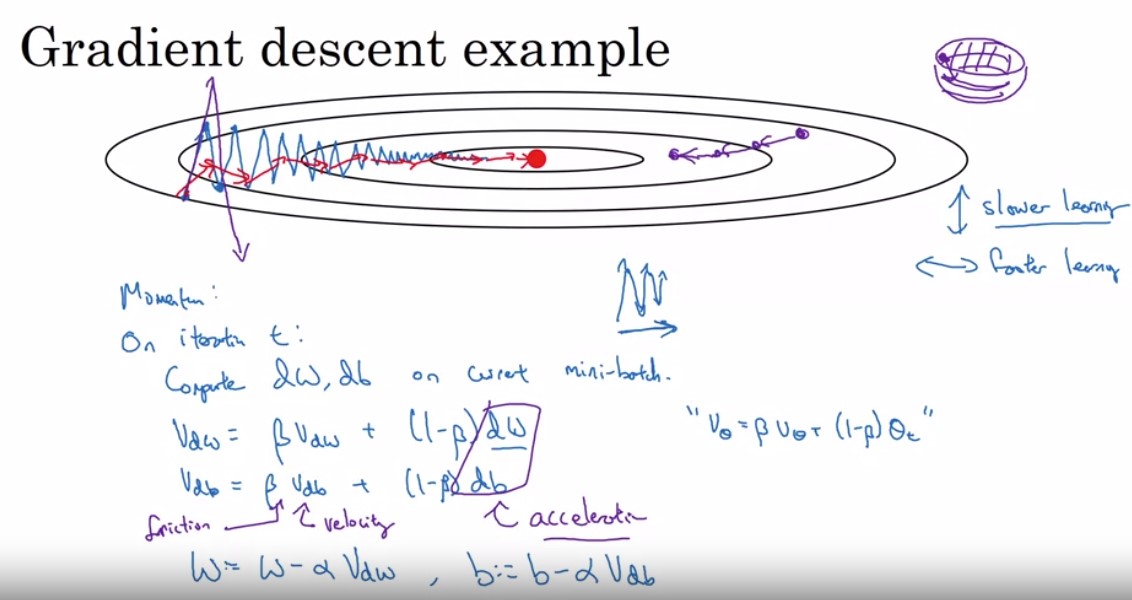 Gradient descent example
slower learning
faster learning
Momentum:
On iteration t:
Compute dW, db on current mini-batch.
Vdw = βVdw + (1-β)dW
"Vθ = βVθ + (1-β)θt"
Vdb = βVdb + (1-β)db
friction velocity acceleration
W := W - αVdw, b := b - αVdb